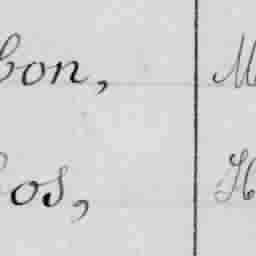 bon, M
os, H